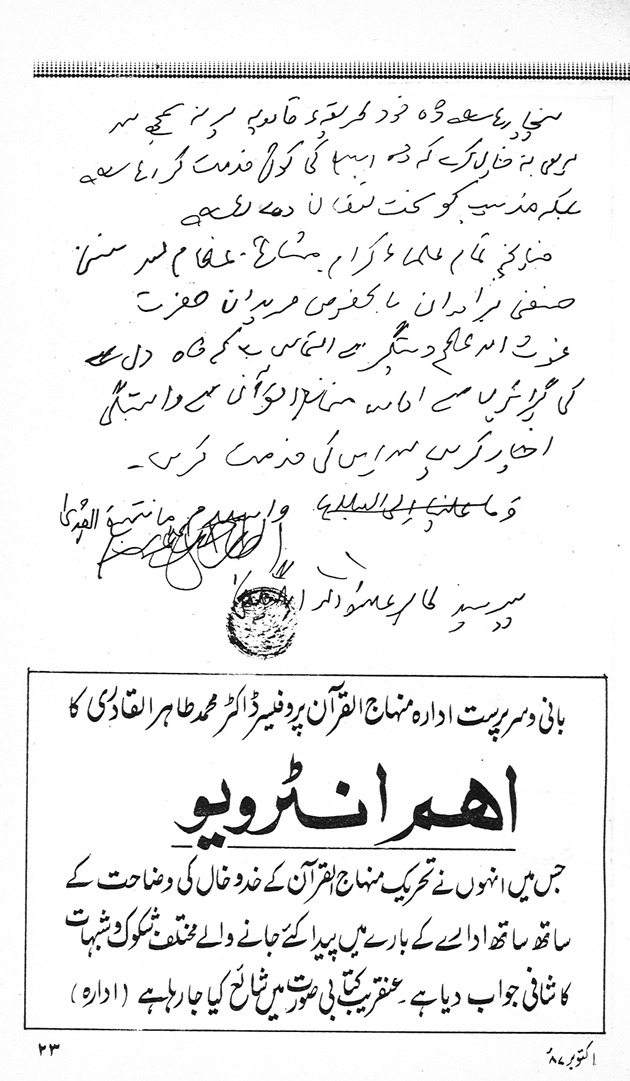 پہنچا رہا ہے وہ خود طریقہء قادریہ پر نہ سمجھے اور
یہ خیال کرے کہ وہ اسلام کی کوئی خدمت کر رہا ہے
بلکہ مذہب کو سخت نقصان دے رہا ہے
چنانچہ تمام علماء کرام مشائخ عظام اور سنی
حنفی برادران بالخصوص مریدان حضرت
غوث اعظم دستگیر سے التماس ہے کہ وہ دل
کی گہرائیوں سے ادارہ منہاج القرآن سے وابستگی
اختیار کریں اور اس کی خدمت کریں۔
وما علینا الا البلاغ والسلام
پیر سید طاہر علاؤالدین
بانی و سرپرست ادارہ منہاج القرآن پروفیسر ڈاکٹر محمد طاہر القادری کا
اہم انٹرویو
جس میں انہوں نے تحریک منہاج القرآن کے خدوخال کی وضاحت کے
ساتھ ساتھ ادارے کے بارے میں پیدا کئے جانے والے مختلف شکوک و شبہات
کا شافی جواب دیا ہے۔ عنقریب کتابی صورت میں شائع کیا جا رہا ہے (ادارہ)
اکتوبر ۸۷ء
۲۳